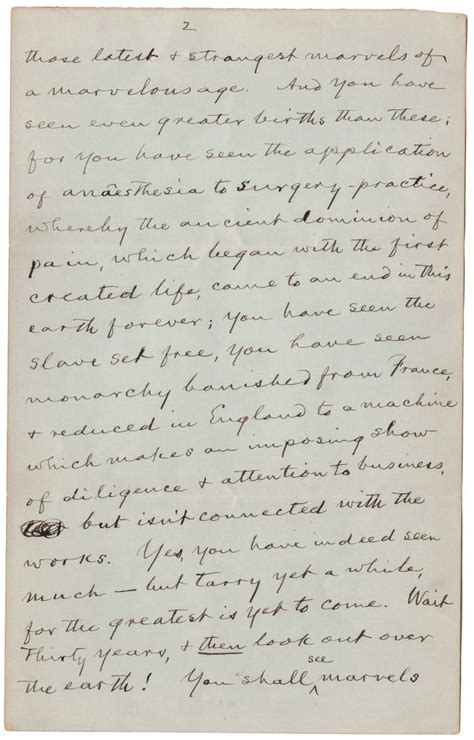 2
those latest & strangest marvels of
a marvelous age. And you have
seen even greater births than these;
for you have seen the application
of anæsthesia to surgery-practice,
whereby the ancient dominion of
pain, which began with the first
created life, came to an end in this
earth forever; you have seen the
slave set free, you have seen
monarchy banished from France,
& reduced in England to a machine
which makes an imposing show
of diligence & attention to business,
but isn't connected with the
works. Yes, you have indeed seen
much — but tarry yet a while,
for the greatest is yet to come. Wait
thirty years, & then look out over
the earth! You shall see marvels